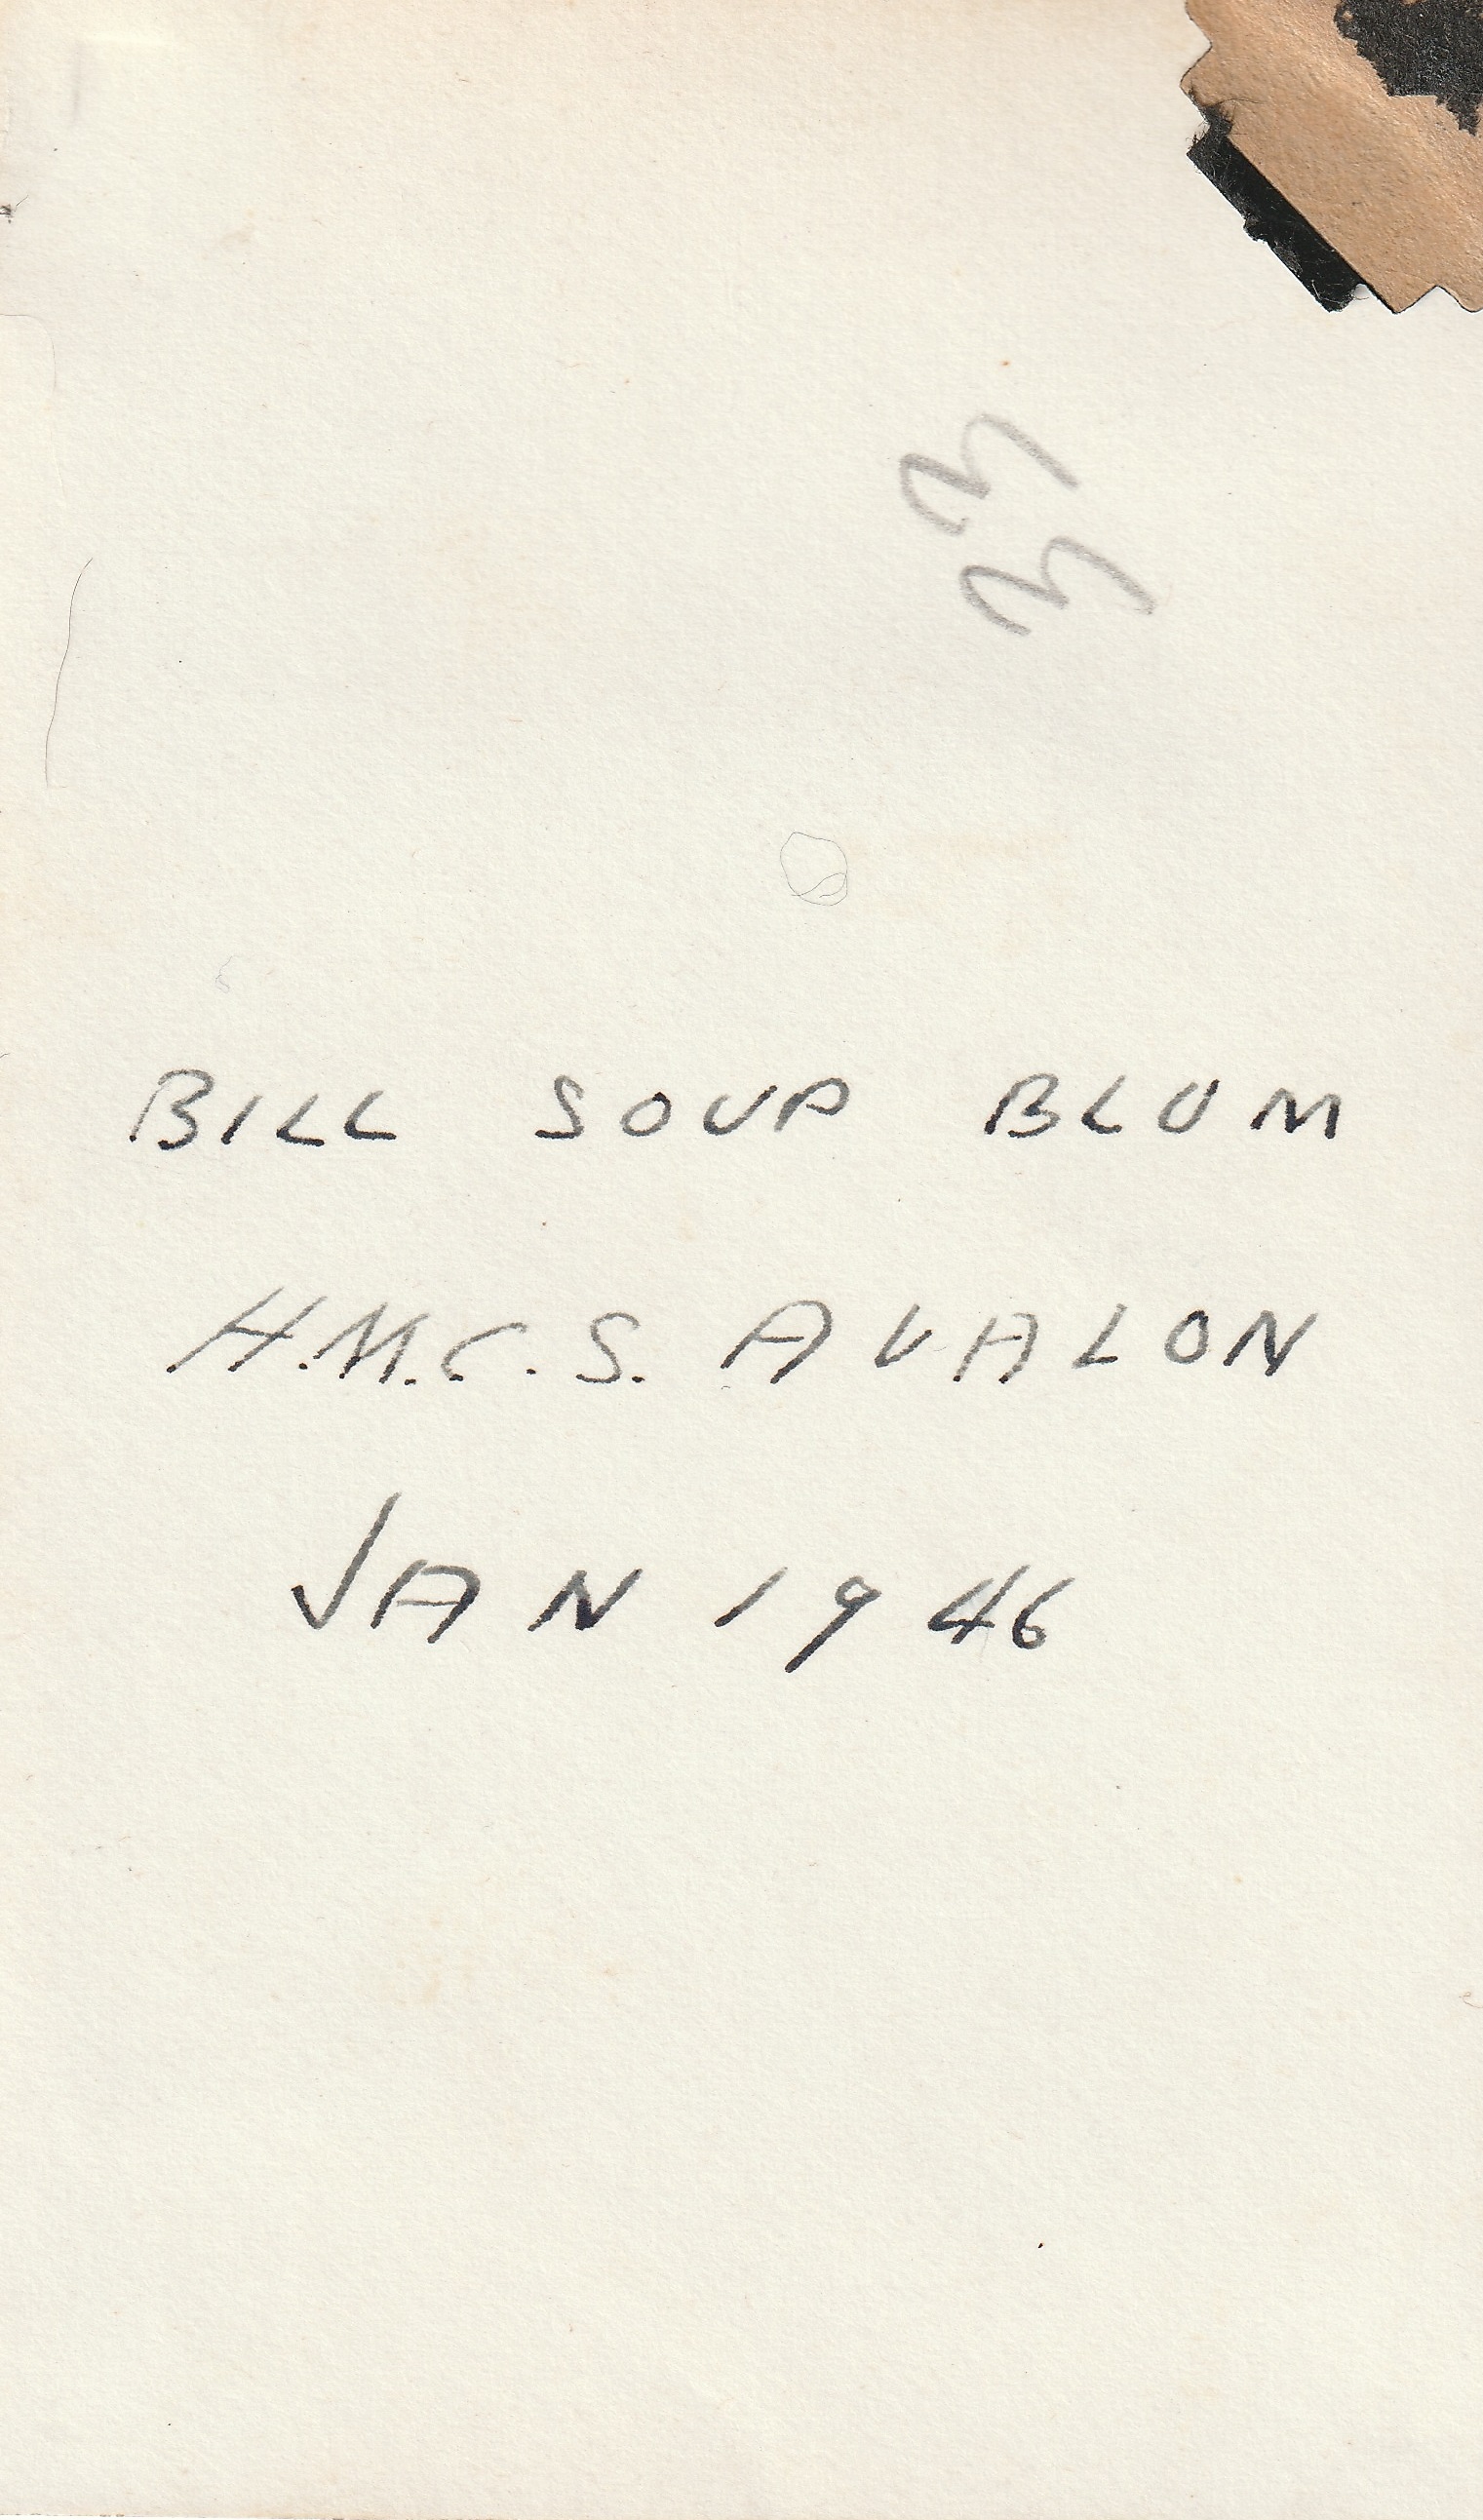 33
BILL SOUP BLUM
H.M.C.S. AVALON
JAN 1946